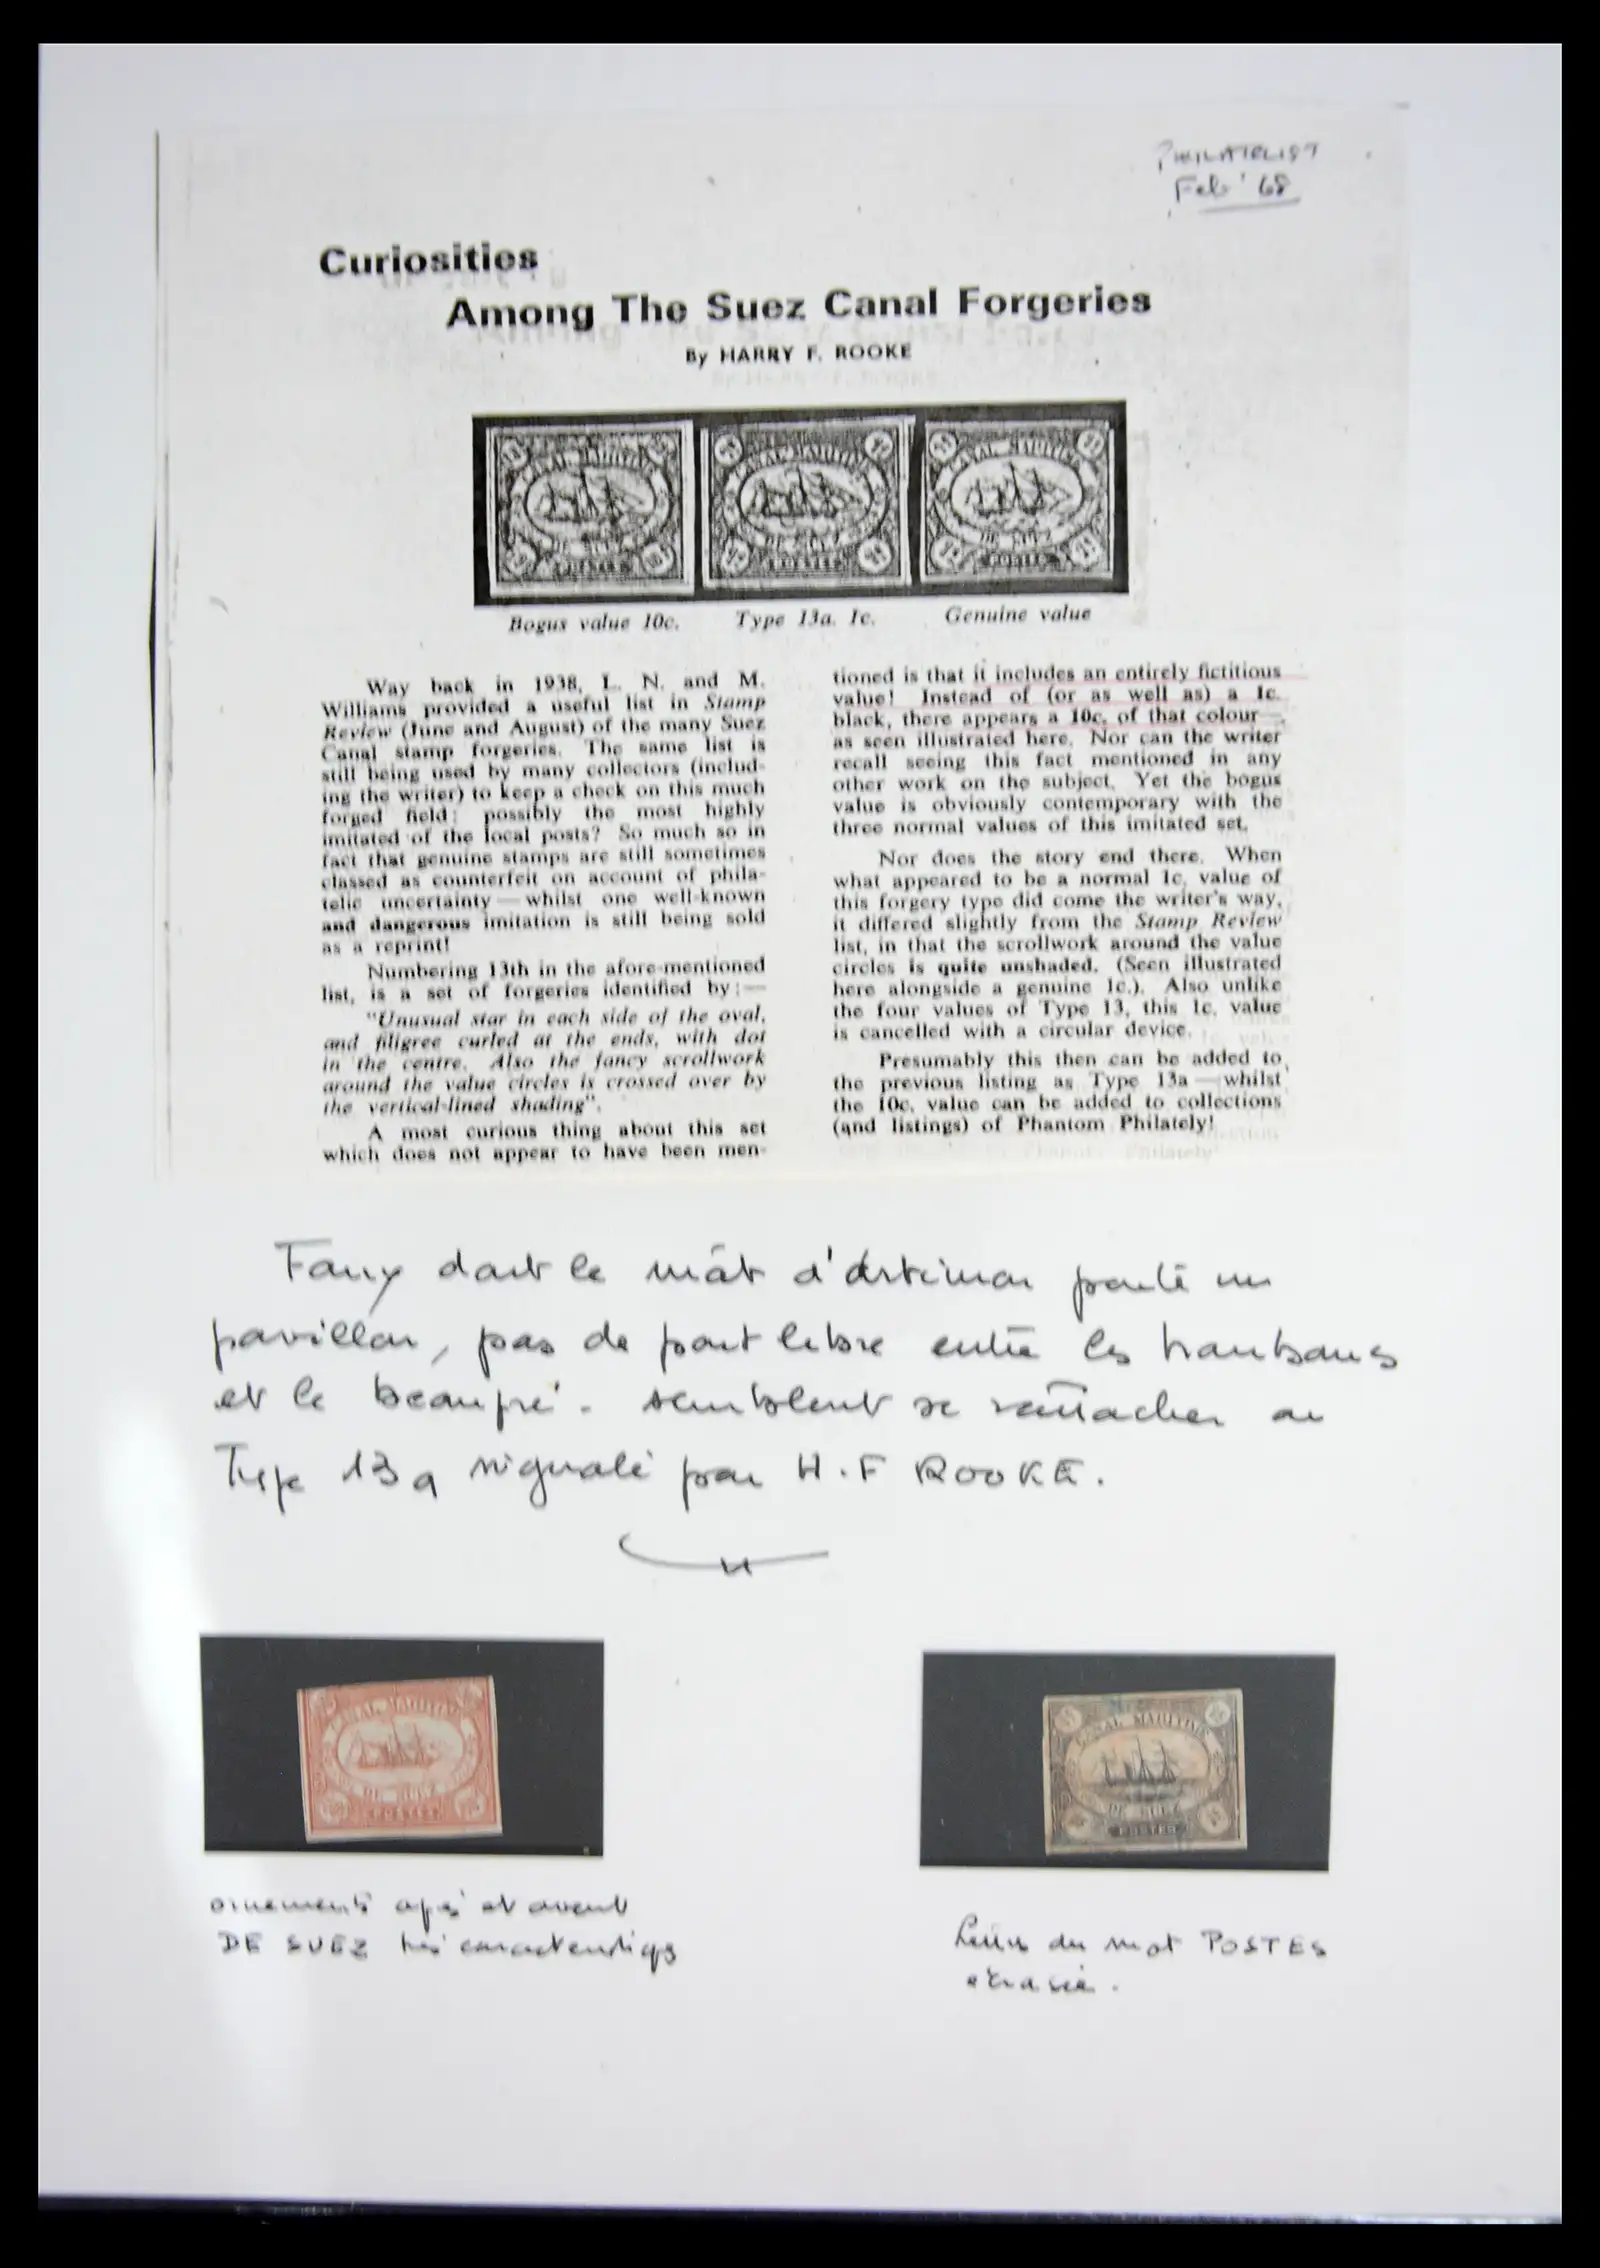 PHILATELIST
Feb' 68
Curiosities
Among The Suez Canal Forgeries
By HARRY F. ROOKE
CANAL MARITIME
DE SUEZ
POSTES
CANAL MARITIME
DE SUEZ
POSTES
CANAL MARITIME
DE SUEZ
POSTES
Bogus value 10c.
Type 13a. 1c.
Genuine value
Way back in 1938, L. N. and M.
Williams provided a useful list in Stamp
Review (June and August) of the many Suez
Canal stamp forgeries. The same list is
still being used by many collectors (includ-
ing the writer) to keep a check on this much
forged field; possibly the most highly
imitated of the local posts? So much so in
fact that genuine stamps are still sometimes
classed as counterfeit on account of phila-
telic uncertainty — whilst one well-known
and dangerous imitation is still being sold
as a reprint!
Numbering 13th in the afore-mentioned
list, is a set of forgeries identified by:—
"Unusual star in each side of the oval,
and filigree curled at the ends, with dot
in the centre. Also the fancy scrollwork
around the value circles is crossed over by
the vertical-lined shading".
A most curious thing about this set
which does not appear to have been men-
tioned is that it includes an entirely fictitious
value! Instead of (or as well as) a 1c.
black, there appears a 10c. of that colour—
as seen illustrated here. Nor can the writer
recall seeing this fact mentioned in any
other work on the subject. Yet the bogus
value is obviously contemporary with the
three normal values of this imitated set.
Nor does the story end there. When
what appeared to be a normal 1c. value of
this forgery type did come the writer's way,
it differed slightly from the Stamp Review
list, in that the scrollwork around the value
circles is quite unshaded. (Seen illustrated
here alongside a genuine 1c.). Also unlike
the four values of Type 13, this 1c. value
is cancelled with a circular device.
Presumably this then can be added to
the previous listing as Type 13a — whilst
the 10c. value can be added to collections
(and listings) of Phantom Philately!
Faux dont le mât d'artimon porte un
pavillon, pas de port libre entre les haubans
et le beaupré. semblent se rattacher au
Type 13a signalé par H.F ROOKE.
CANAL MARITIME
DE SUEZ
POSTES
CANAL MARITIME
DE SUEZ
POSTES
ornements après et avant
DE SUEZ très caractéristiqs
du mot POSTES
écrasé.